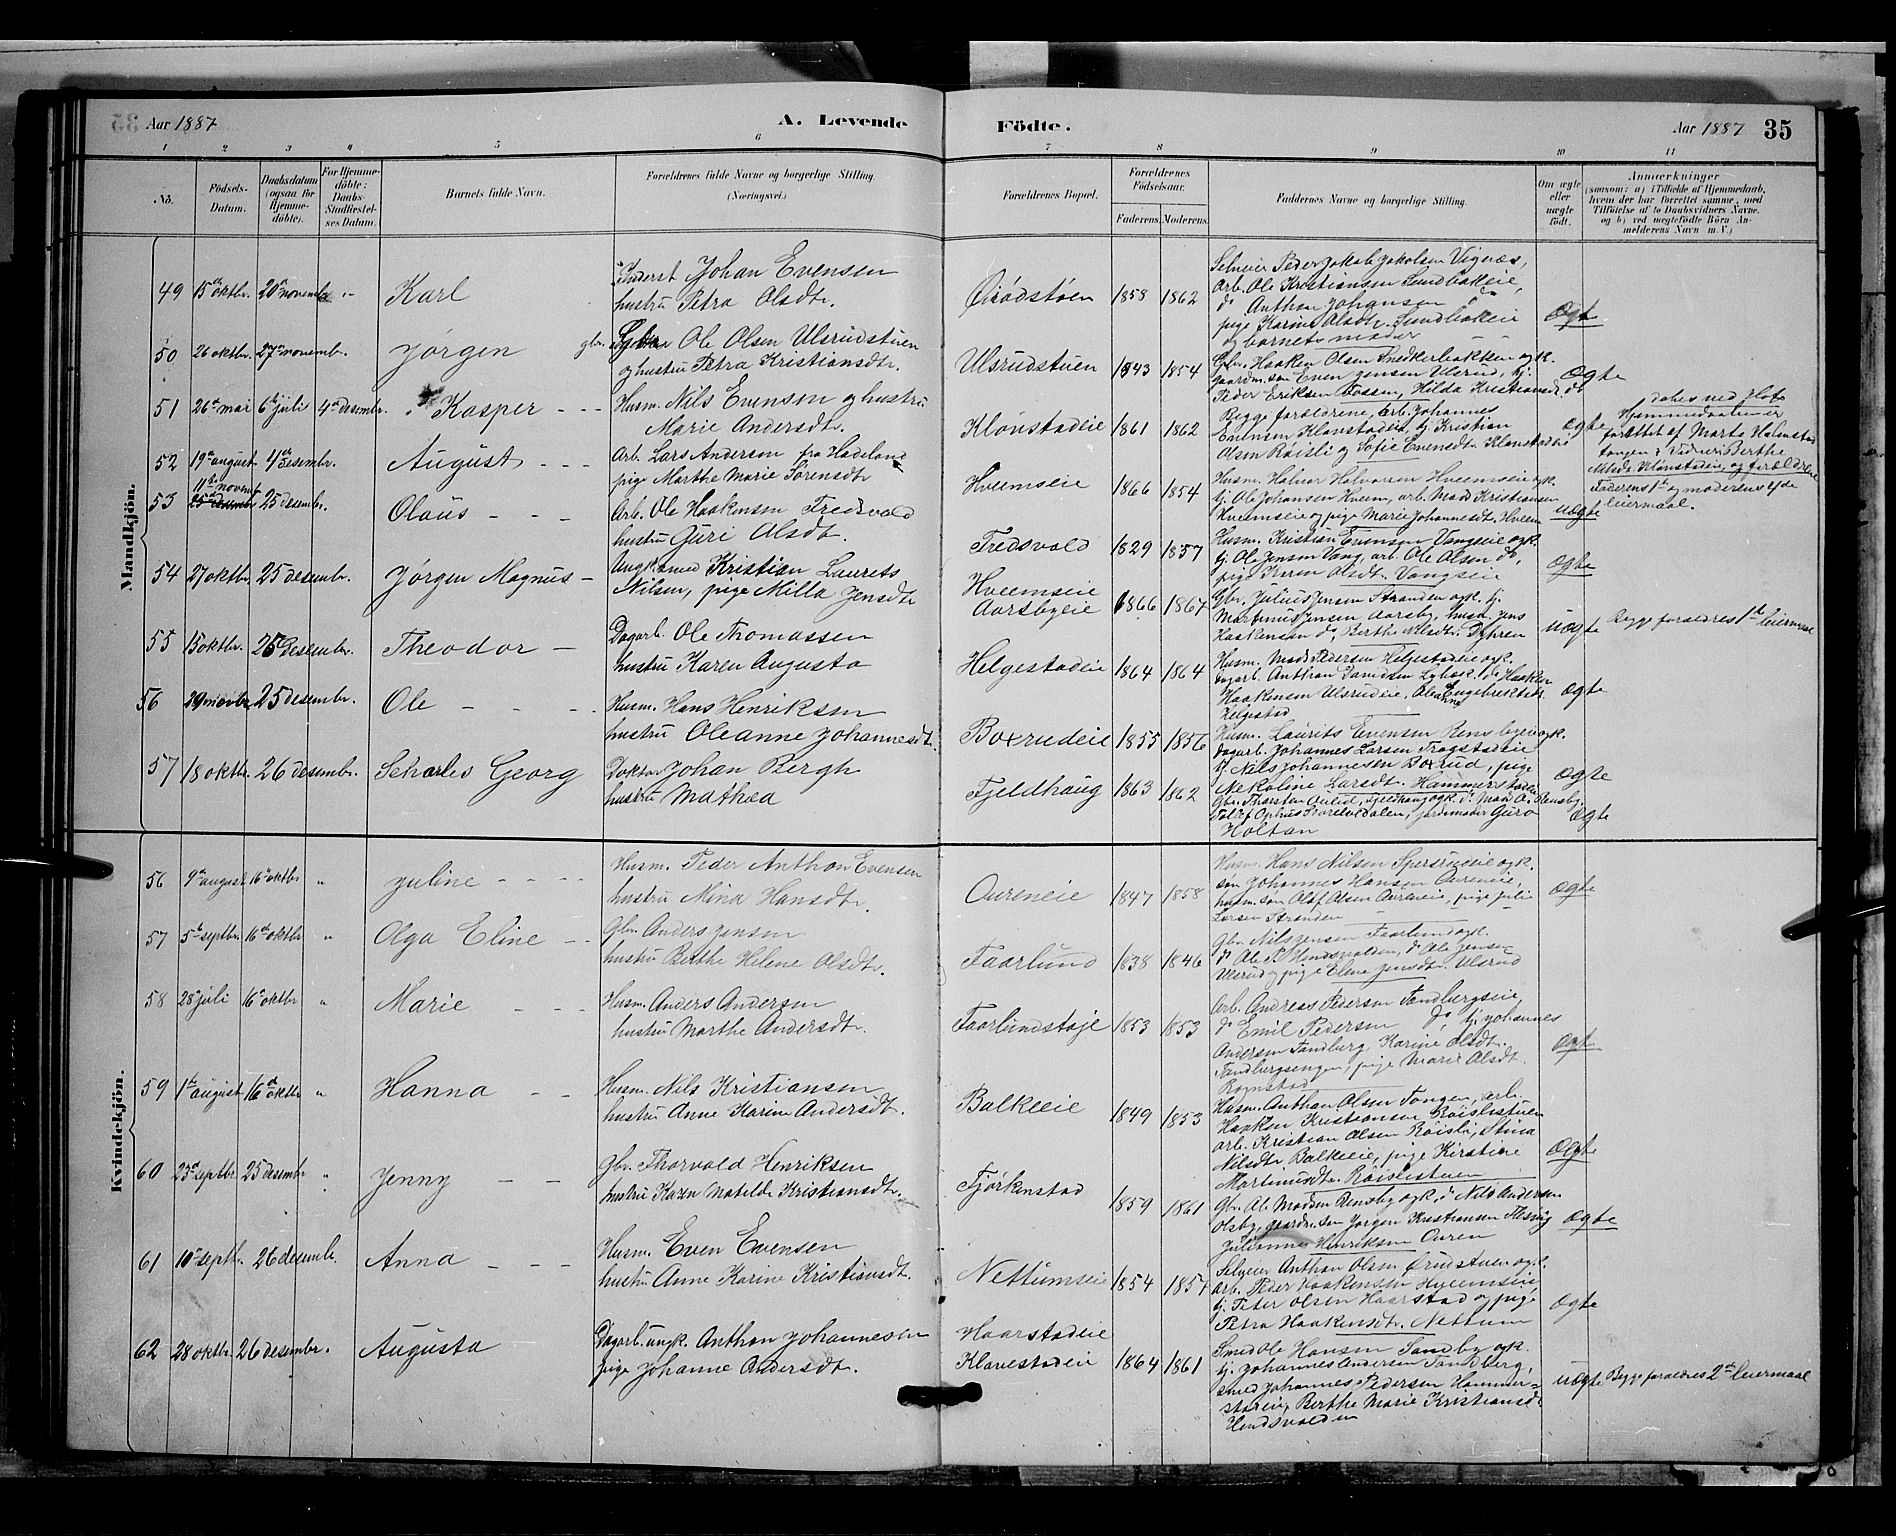 35 Aar 1887 A. Levende Födte. Aar 1887 35
1 2 3 4 5 6 7 8 9 10 11
No.
Födsels-
Datum.
Daabsdatum
(ogsaa for
Hjemme-
döbte).
For Hjemme-
döbte:
Daabs-
Stadfæstel-
ses Datum.
Barnets fulde Navn.
Forældrenes fulde Navne og borgerlige Stilling.
(Næringsvei.)
Forældrenes Bopæl.
Forældrenes
Födselsaar.
Faderens. Moderens.
Faddernes Navne og borgerlige Stilling.
Om ægte
eller
uægte
födt.
Anmærkninger
(saasom: a) i Tilfælde af Hjemmedaab,
hvem der har forrettet samme, med
Tilföielse af to Daabsvidners Navne,
og b) ved uægtefödte Börn An-
melderens Navn m. V.)
Mandkjön.
49 15de oktbr. 20de novembr. " Karl
Inderst Johan Evensen
hustru Petra Olsdtr.
1858 1862
Selveier Peder Jakob Jakobsen Vignæs,
arb. Ole Kristiansen Sundbakeie,
do Anthon Johansen
pige Karine Olsdtr. Sundbakeie
og barnets moder
Ægte
50 26 oktbr. 27de novembr. Jørgen
gbr. Ole Olsen Ulsrudstuen
og hustru Petra Kristiansdtr.
Ulsrudstuen 1843 1854
Gbr. Haaken Olsen Snedkerbakken ogk.
gaardm. søn Even Jensen Ulsrud, tj.
Peder Eriksen Fossen, Hilda Kristiansd. do
Ægte
51 26de mai 6te juli 4de desembr. Kasper - - -
Husm. Nils Evensen og hustru
Marie Andersdtr.
Klønstadeie 1861 1862
Begge forældrene, arb. Johannes
Evensen Klønstadeie, tj. Kristian
Olsen Røisli og Sofie Evensdtr. Klønstadeie
Ægte
Hjemmedaaben er
forrettet af Marte Halmstad
tangen; Vidner: Berthe
Nilsd. Klønstadeie, og forældrene
52 19de august 4de desembr. August - - -
Arb. Lars Andersen fra Hadeland
pige Marthe Marie Sørensdtr.
Hveemseie 1866 1854
Husm. Halvor Halvorsen Hveemseie ogk.
tj. Ole Johansen Hveem, arb. Mads Kristiansen
Hveemseie og pige Marie Johannesdtr. Hveem
uægte
Faderens 1ste og moderens 4de
leiermaal.
53 11te novemb. 25 desembr. Olaus - - -
Arb. Ole Haakensen Fredsvold
hustru Guri Olsdtr.
Fredsvold 1829 1857
Husm. Kristian Evensen Vangseie ogk.
tj. Ole Jensen Vang, arb. Ole Olsen do,
pige Karen Olsdtr. Vangseie
Ægte
54 27 oktbr. 25 desembr. Jørgen Magnus -
Ungk. smed Kristian Laurets
Nilsen, pige Milla Jensdtr
Hveemseie
Aarsbyeie 1866 1867
Gbr. Julius Jensen Stranden ogk. tj.
Martinus Jensen Aarsby, husm. Jens
Haakensen do, Berthe Nilsdtr. Dyhren
uægte Begge forældres 1ste leiermaal
55 15 oktbr. 25 Desembr. Theodor -
Dagarb. Ole Thomassen
hustru Karen Augusta
Helgestadeie 1864 1864
Husm. Mads Pedersen Helgestadeie ogk.
dagarb. Anthon Davidsen Lybæk, do Haaken
Haakensen Ulsrudeie, Oleanna Engebrektsdr.
Helgestad
Ægte
56 29 novbr 25 desembr. Ole - - -
Husm. Hans Henriksen
hustru Oleanne Johannesdtr.
Boxrudeie 1855 1856
Husm. Laurits Evensen Rensbyeie ogk.
dagarb. Johannes Larsen Trogstadeie
tj. Nils Johannesen Boxrud, pige
Nekoline Larsdtr. Hammerstadeie
Ægte
57 18 oktbr. 26 desembr. Scharles Georg
Doktor Johan Bergh
hustru Mathea
Fjeldhaug 1863 1862
Gbr. Thorsten Aulid, Fjeldhaug ogk. do Mads A. Rensby,
Tollef Ophus Storelvedalen, jordemoder Guro
Holtan
Ægte
Kvindekjön.
56 9de august 16de oktbr " Juline - - - -
Husm. Peder Anthon Evensen
hustru Mina Hansdtr.
Oureneie 1847 1858
Husm. Hans Nilsen Spersrudeie ogk.
søn Johannes Hansen Oureneie,
husm. søn Olaf Olsen Aureneie, pige Juli
Larsen Stranden
Ægte
57 5te septbr. 16de oktbr " Olga Eline - -
Gbr. Anders Jensen
hustru Berthe Helene Olsdtr.
Faarlund 1838 1846
Gbr. Nils Jensen Faarlund ogk.
do Ole P. Hendsvolden, do Ole Jensen
Ulsrud og pige Elene Jensdtr. Ulsrud
58 28de juli 16de oktbr " Marie - - -
Husm. Anders Andersen
hustru Marthe Andersdtr.
Faarlundstøje 1853 1853
Arb. Andreas Pedersen Sandbergseie,
do Emil Pedersen do, tj. Johannes
Andersen Sandberg, Karine Olsdtr.
Sandbergsengen, pige Marie Olsdtr.
Rognstad
Ægte
59 1ste august 16de oktbr " Hanna - -
Husm. Nils Kristiansen
hustru Anne Karine Andersdtr.
Balkeeie 1849 1853
Husm. Anthon Olsen Tangen, arb.
Haaken Kristiansen Røislistuen
arb. Kristian Olsen Røisli, Stina
Nilsdtr. Balkeeie, pige Kirstine
Martinusdtr. Røislistuen
Ægte
60 23de septbr 25 desembr " Jenny - -
Gbr. Thorvald Henriksen
hustru Karen Matilde Kristiansdtr.
Fjørkenstad 1859 1861
Gbr. Ole Madsen Rensby ogk, do Nils Andersen
Olsby, gaardm. søn Jørgen Kristiansen Flesvig
Julianne Henriksen Ouren
Ægte
61 10de septbr. 26 desembr. Anna - - -
Husm. Even Evensen
hustru Anne Karine Kristiansdtr.
Nettumseie 1854 1857
Selveier Anthon Olsen Ørudstuen ogk.
arb. Peder Haakensen Hveemseie
tj. Peter Olsen Haarstad og pige
Petra Haakensdtr. Nettum
Ægte
62 28 oktbr. 26 desembr. Augusta
Dagarb. ungk. Anthon Johannesen
pige Johanne Andersdtr.
Haarstadeie
Klavestadeie 1864 1861
Smed Ole Hansen Sandby ogk.
tj. Johannes Andersen Sandberg,
smed Johannes Pedersen Hammer-
stadeie, Berthe Marie Kristiansdr
Hendsvolden
uægte Begge forældres 2det leiermaal